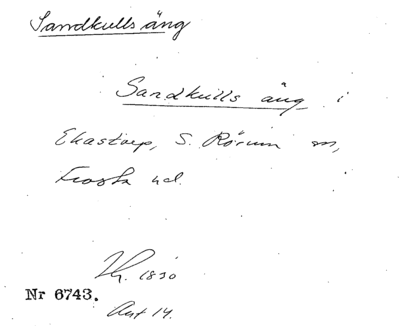 Sandkulls äng
Sandkulls äng i
Ekastorp, S. Rörum sn,
Frosta hd.
1830
Nr 6743.
Akt 14.